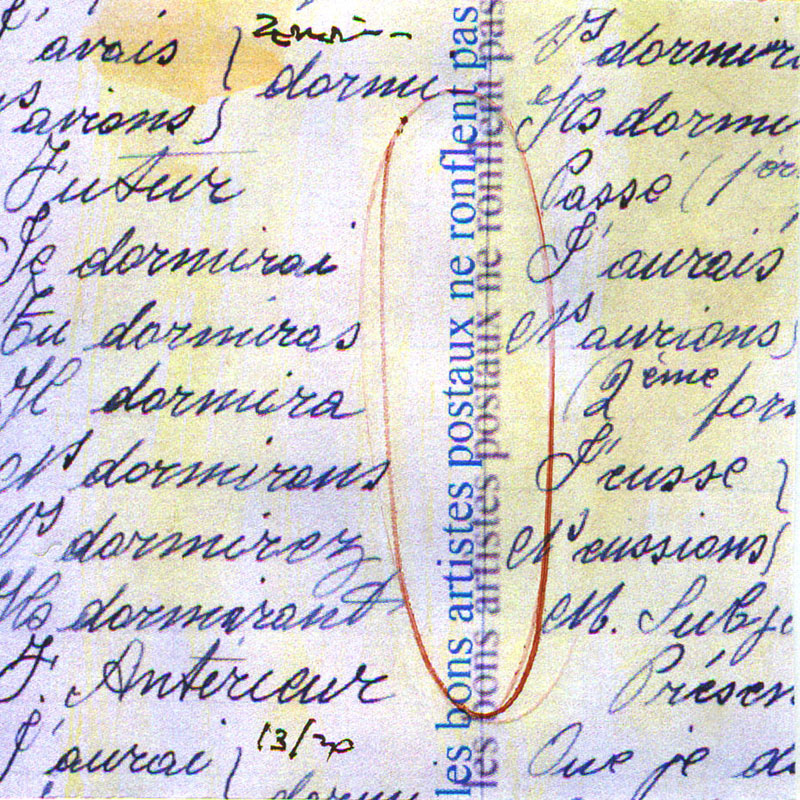 J'avais
dormi
N's avions
Futur
Je dormirai
Tu dormiras
Il dormira
Ns dormirons
Vs dormirez
Ils dormiront
F. Antérieur
J'aurai
dormi
13/20
les bons artistes postaux ne ronflent pas
les bons artistes postaux ne ronflent pas
Vs dormiri
Ils dormi
Passé (1èr
J'aurais
N's aurions
(2ème form
J'eusse
N's eussions
M. Subj
Présen
Que je d